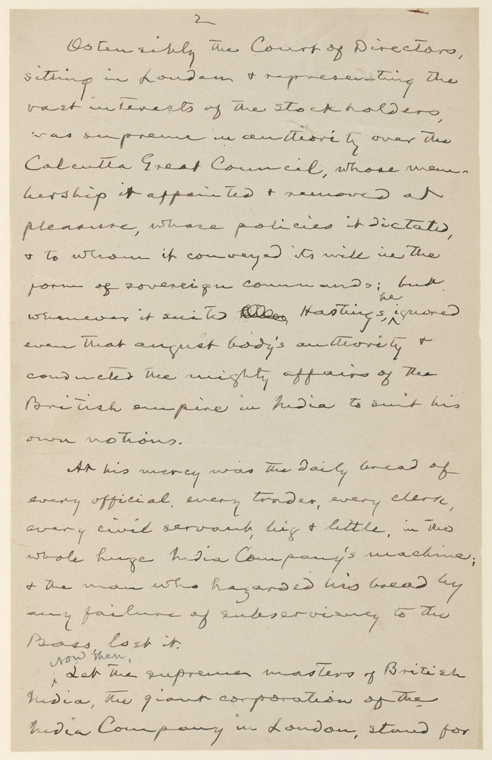 2
Ostensibly the Court of Directors,
sitting in London & representing the
vast interests of the stockholders,
was supreme in authority over the
Calcutta Great Council, whose mem-
bership it appointed & removed at
pleasure, whose policies it dictated,
& to whom it conveyed its will in the
form of sovereign commands; but
whenever it suited Hastings, he ignored
even that august body's authority &
conducted the mighty affairs of the
British empire in India to suit his
own notions.
At his mercy was the daily bread of
every official, every trader, every clerk,
every civil servant, big & little, in the
whole huge India Company's machine;
& the man who hazarded his bread by
any failure of subserviency to the
Boss, lost it.
Now then,
Let the supreme masters of British
India, the giant corporation of the
India Company in London, stand for